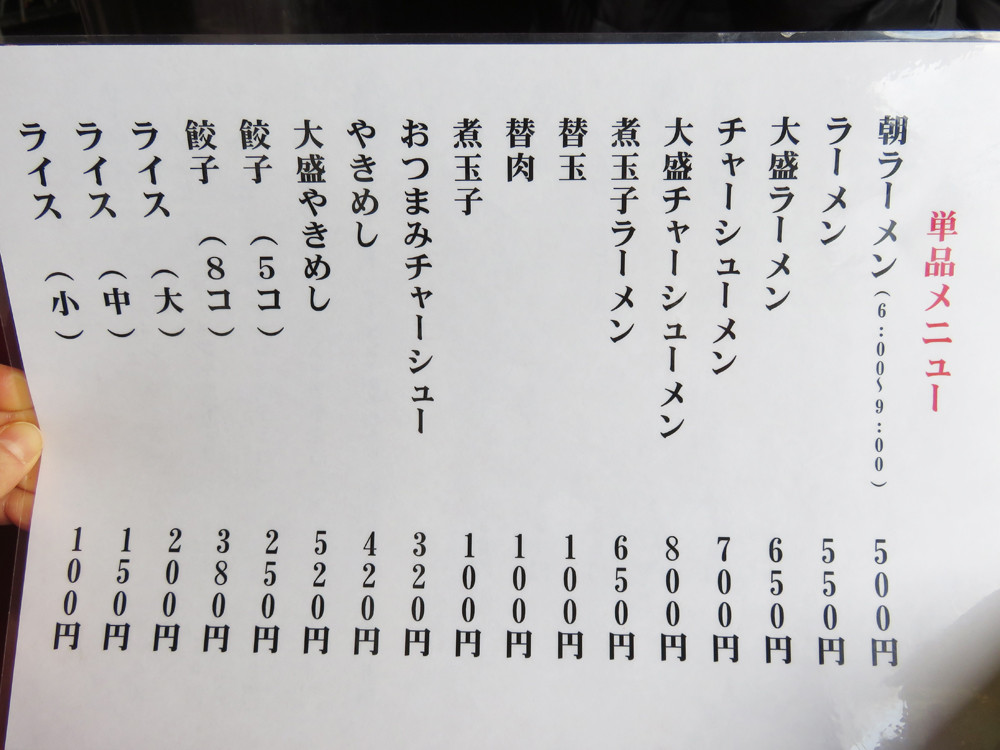 単品メニュー
朝ラーメン(6:00~9:00) 500円
ラーメン 550円
大盛ラーメン 650円
チャーシューメン 700円
大盛チャーシューメン 800円
煮玉子ラーメン 650円
替玉 100円
替肉 100円
煮玉子 100円
おつまみチャーシュー 320円
やきめし 420円
大盛やきめし 520円
餃子 (5コ) 250円
餃子 (8コ) 380円
ライス (大) 200円
ライス (中) 150円
ライス (小) 100円